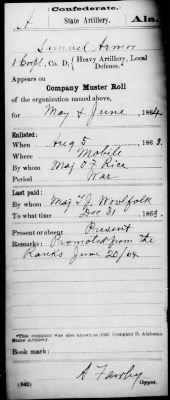 (Confederate.)
A State Artillery. Ala.
Samuel Armor
1 Corpl, Co. D, { Heavy Artillery, Local Defence.*
Appears on
Company Muster Roll
of the organization named above,
for May & June, 1864.
Enlisted:
When Aug 5, 1863.
Where Mobile
By whom Maj O F Rice
Period War
Last paid:
By whom Maj T. J. Woolfolk
To what time Dec 31, 1863.
Present or absent Present
Remarks: Promoted from the
Ranks June 20/64
*This company was also known as (2d) Company D, Alabama
State Artillery.
Book mark:
(642) Copyist.